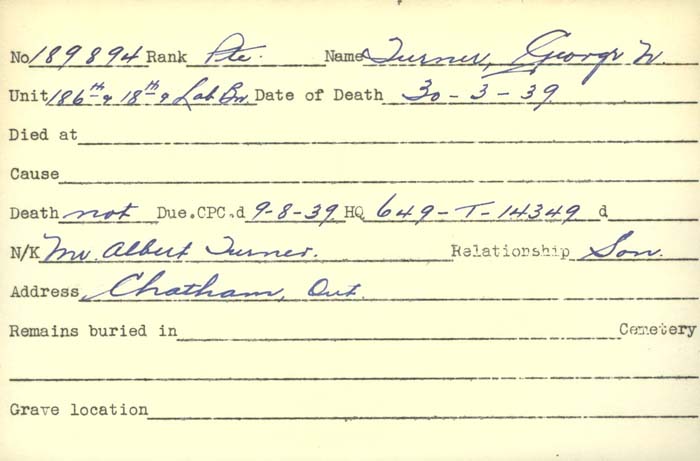 No 189894 Rank Pte. Name Turner, George W.
Unit 186th & 18th & Lab Bn. Date of Death 30-3-39
Died at
Cause
Death not Due. CPC. d 9-8-39 HQ 649-T-14349 d
N/K Mr. Albert Turner. Relationship Son.
Address Chatham, Ont.
Remains buried in Cemetery
Grave location